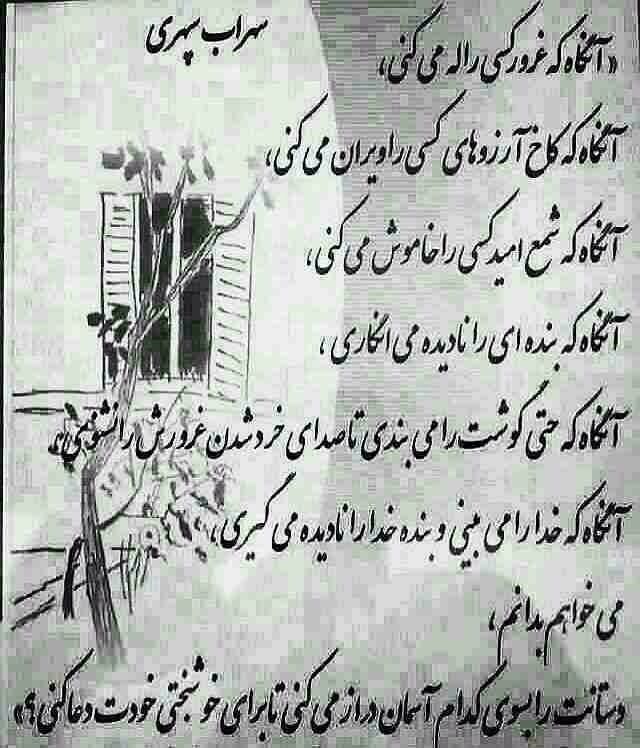 سهراب سپهری
«آنگاه که غرور کسی را له می کنی،
آنگاه که کاخ آرزوهای کسی را ویران می کنی،
آنگاه که شمع امید کسی را خاموش می کنی،
آنگاه که بنده ای را نادیده می انگاری ،
آنگاه که حتی گوشت را می بندی تا صدای خرد شدن غرورش را نشنوی،
آنگاه که خدا را می بینی و بنده خدا را نادیده می گیری،
می خواهم بدانم،
دستانت را بسوی کدام آسمان دراز می کنی تا برای خوشبختی خودت دعا کنی؟»